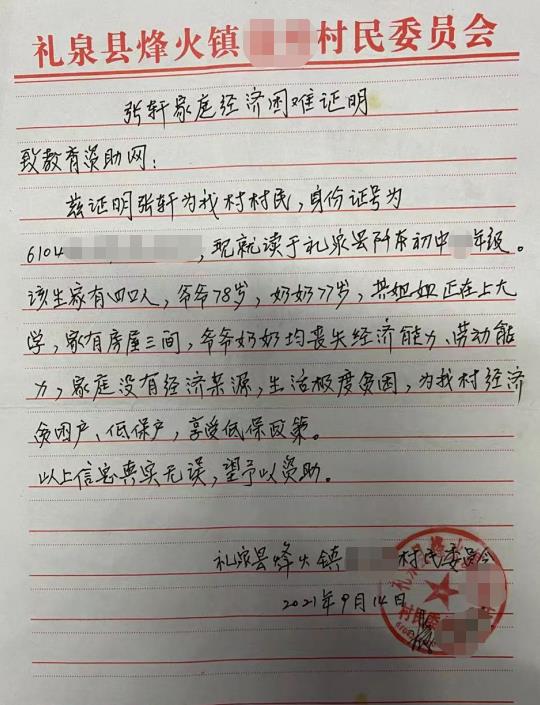 礼泉县烽火镇 村民委员会
张轩家庭经济困难证明
致教育资助网：
兹证明张轩为我村村民，身份证号为
6104 ，现就读于礼泉县阡东初中 年级。
该生家有四口人，爷爷78岁，奶奶77岁，其姐姐正在上大
学，家有房屋三间，爷爷奶奶均丧失经济能力、劳动能
力，家庭没有经济来源，生活极度贫困，为我村经济
贫困户、低保户，享受低保政策。
以上信息真实无误，望予以资助。
礼泉县烽火镇 村民委员会
2021年9月14日